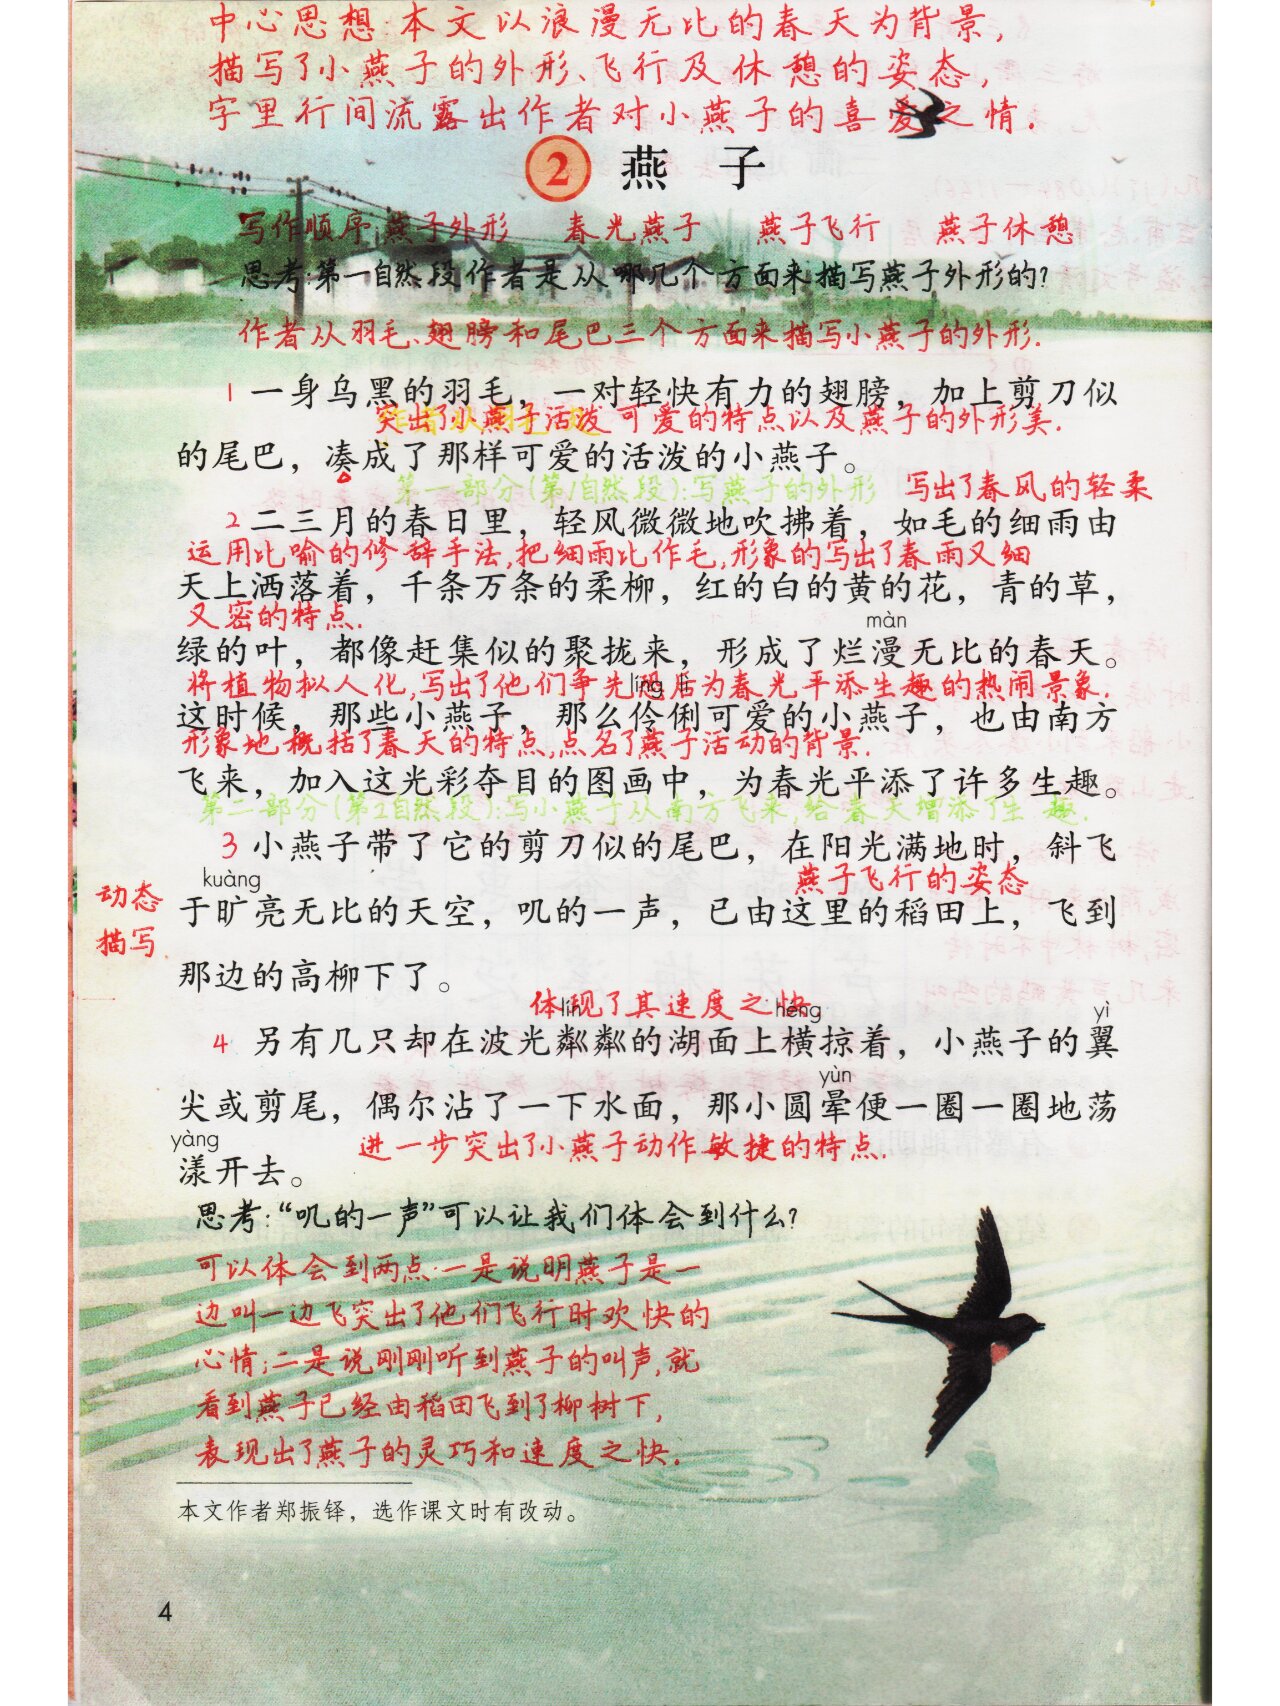 中心思想:本文以浪漫无比的春天为背景,
描写了小燕子的外形、飞行及休憩的姿态,
字里行间流露出作者对小燕子的喜爱之情.
2 燕子
写作顺序 燕子外形 春光燕子 燕子飞行 燕子休憩
思考:第一自然段作者是从哪几个方面来描写燕子外形的?
作者从羽毛、翅膀和尾巴三个方面来描写小燕子的外形.
1 一身乌黑的羽毛，一对轻快有力的翅膀，加上剪刀似
突出了小燕子活泼可爱的特点以及燕子的外形美.
的尾巴，凑成了那样可爱的活泼的小燕子。
第一部分(第1自然段):写燕子的外形 写出了春风的轻柔
2 二三月的春日里，轻风微微地吹拂着，如毛的细雨由
运用比喻的修辞手法,把细雨比作毛,形象的写出了春雨又细
天上洒落着，千条万条的柔柳，红的白的黄的花，青的草，
又密的特点.
màn
绿的叶，都像赶集似的聚拢来，形成了烂漫无比的春天。
将植物拟人化,写出了他们争先恐后为春光平添生趣的热闹景象.
líng lì
这时候，那些小燕子，那么伶俐可爱的小燕子，也由南方
形象地概括了春天的特点,点名了燕子活动的背景.
飞来，加入这光彩夺目的图画中，为春光平添了许多生趣。
第二部分(第2自然段):写小燕子从南方飞来,给春天增添了生趣.
3 小燕子带了它的剪刀似的尾巴，在阳光满地时，斜飞
kuàng
燕子飞行的姿态
动态
描写
于旷亮无比的天空，叽的一声，已由这里的稻田上，飞到
那边的高柳下了。
体现了其速度之快.
lín héng yì
4 另有几只却在波光粼粼的湖面上横掠着，小燕子的翼
yùn
尖或剪尾，偶尔沾了一下水面，那小圆晕便一圈一圈地荡
yàng
进一步突出了小燕子动作敏捷的特点.
漾开去。
思考:“叽的一声”可以让我们体会到什么?
可以体会到两点:一是说明燕子是一
边叫一边飞突出了他们飞行时欢快的
心情;二是说刚刚听到燕子的叫声,就
看到燕子已经由稻田飞到了柳树下,
表现出了燕子的灵巧和速度之快.
本文作者郑振铎，选作课文时有改动。
4